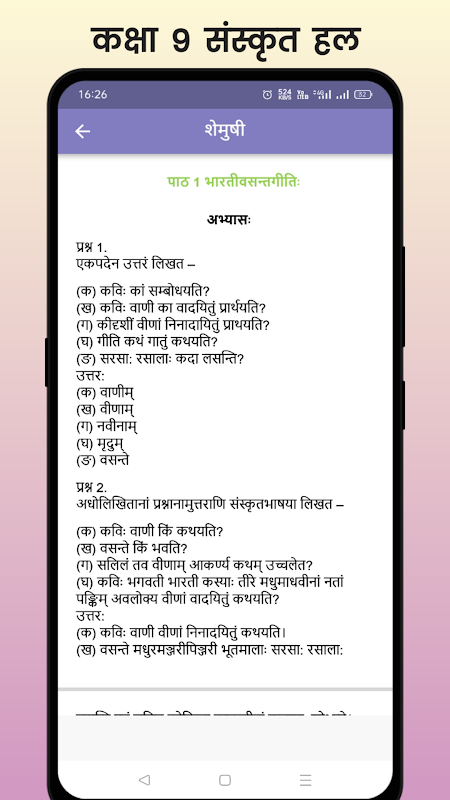 कक्षा 9 संस्कृत हल
16:26
524 KB/S
Vo LTE
4G
52
शेमुषी
पाठ 1 भारतीवसन्तगीतिः
अभ्यासः
प्रश्न 1.
एकपदेन उत्तरं लिखत –
(क) कविः कां सम्बोधयति?
(ख) कविः वाणी का वादयितुं प्रार्थयति?
(ग) कीदृशीं वीणां निनादायितुं प्राथयति?
(घ) गीति कथं गातुं कथयति?
(ङ) सरसा: रसालाः कदा लसन्ति?
उत्तर:
(क) वाणीम्
(ख) वीणाम्
(ग) नवीनाम्
(घ) मृदुम्
(ङ) वसन्ते
प्रश्न 2.
अधोलिखितानां प्रश्नानामुत्तराणि संस्कृतभाषया लिखत –
(क) कविः वाणी किं कथयति?
(ख) वसन्ते किं भवति?
(ग) सलिलं तव वीणाम् आकर्ण्य कथम् उच्चलेत?
(घ) कविः भगवती भारती कस्याः तीरे मधुमाधवीनां नतां
पङ्क्तिम् अवलोक्य वीणां वादयितुं कथयति?
उत्तर:
(क) कविः वाणी वीणां निनादयितुं कथयति।
(ख) वसन्ते मधुरमञ्जरीपिञ्जरी भूतमालाः सरसा: रसाला: